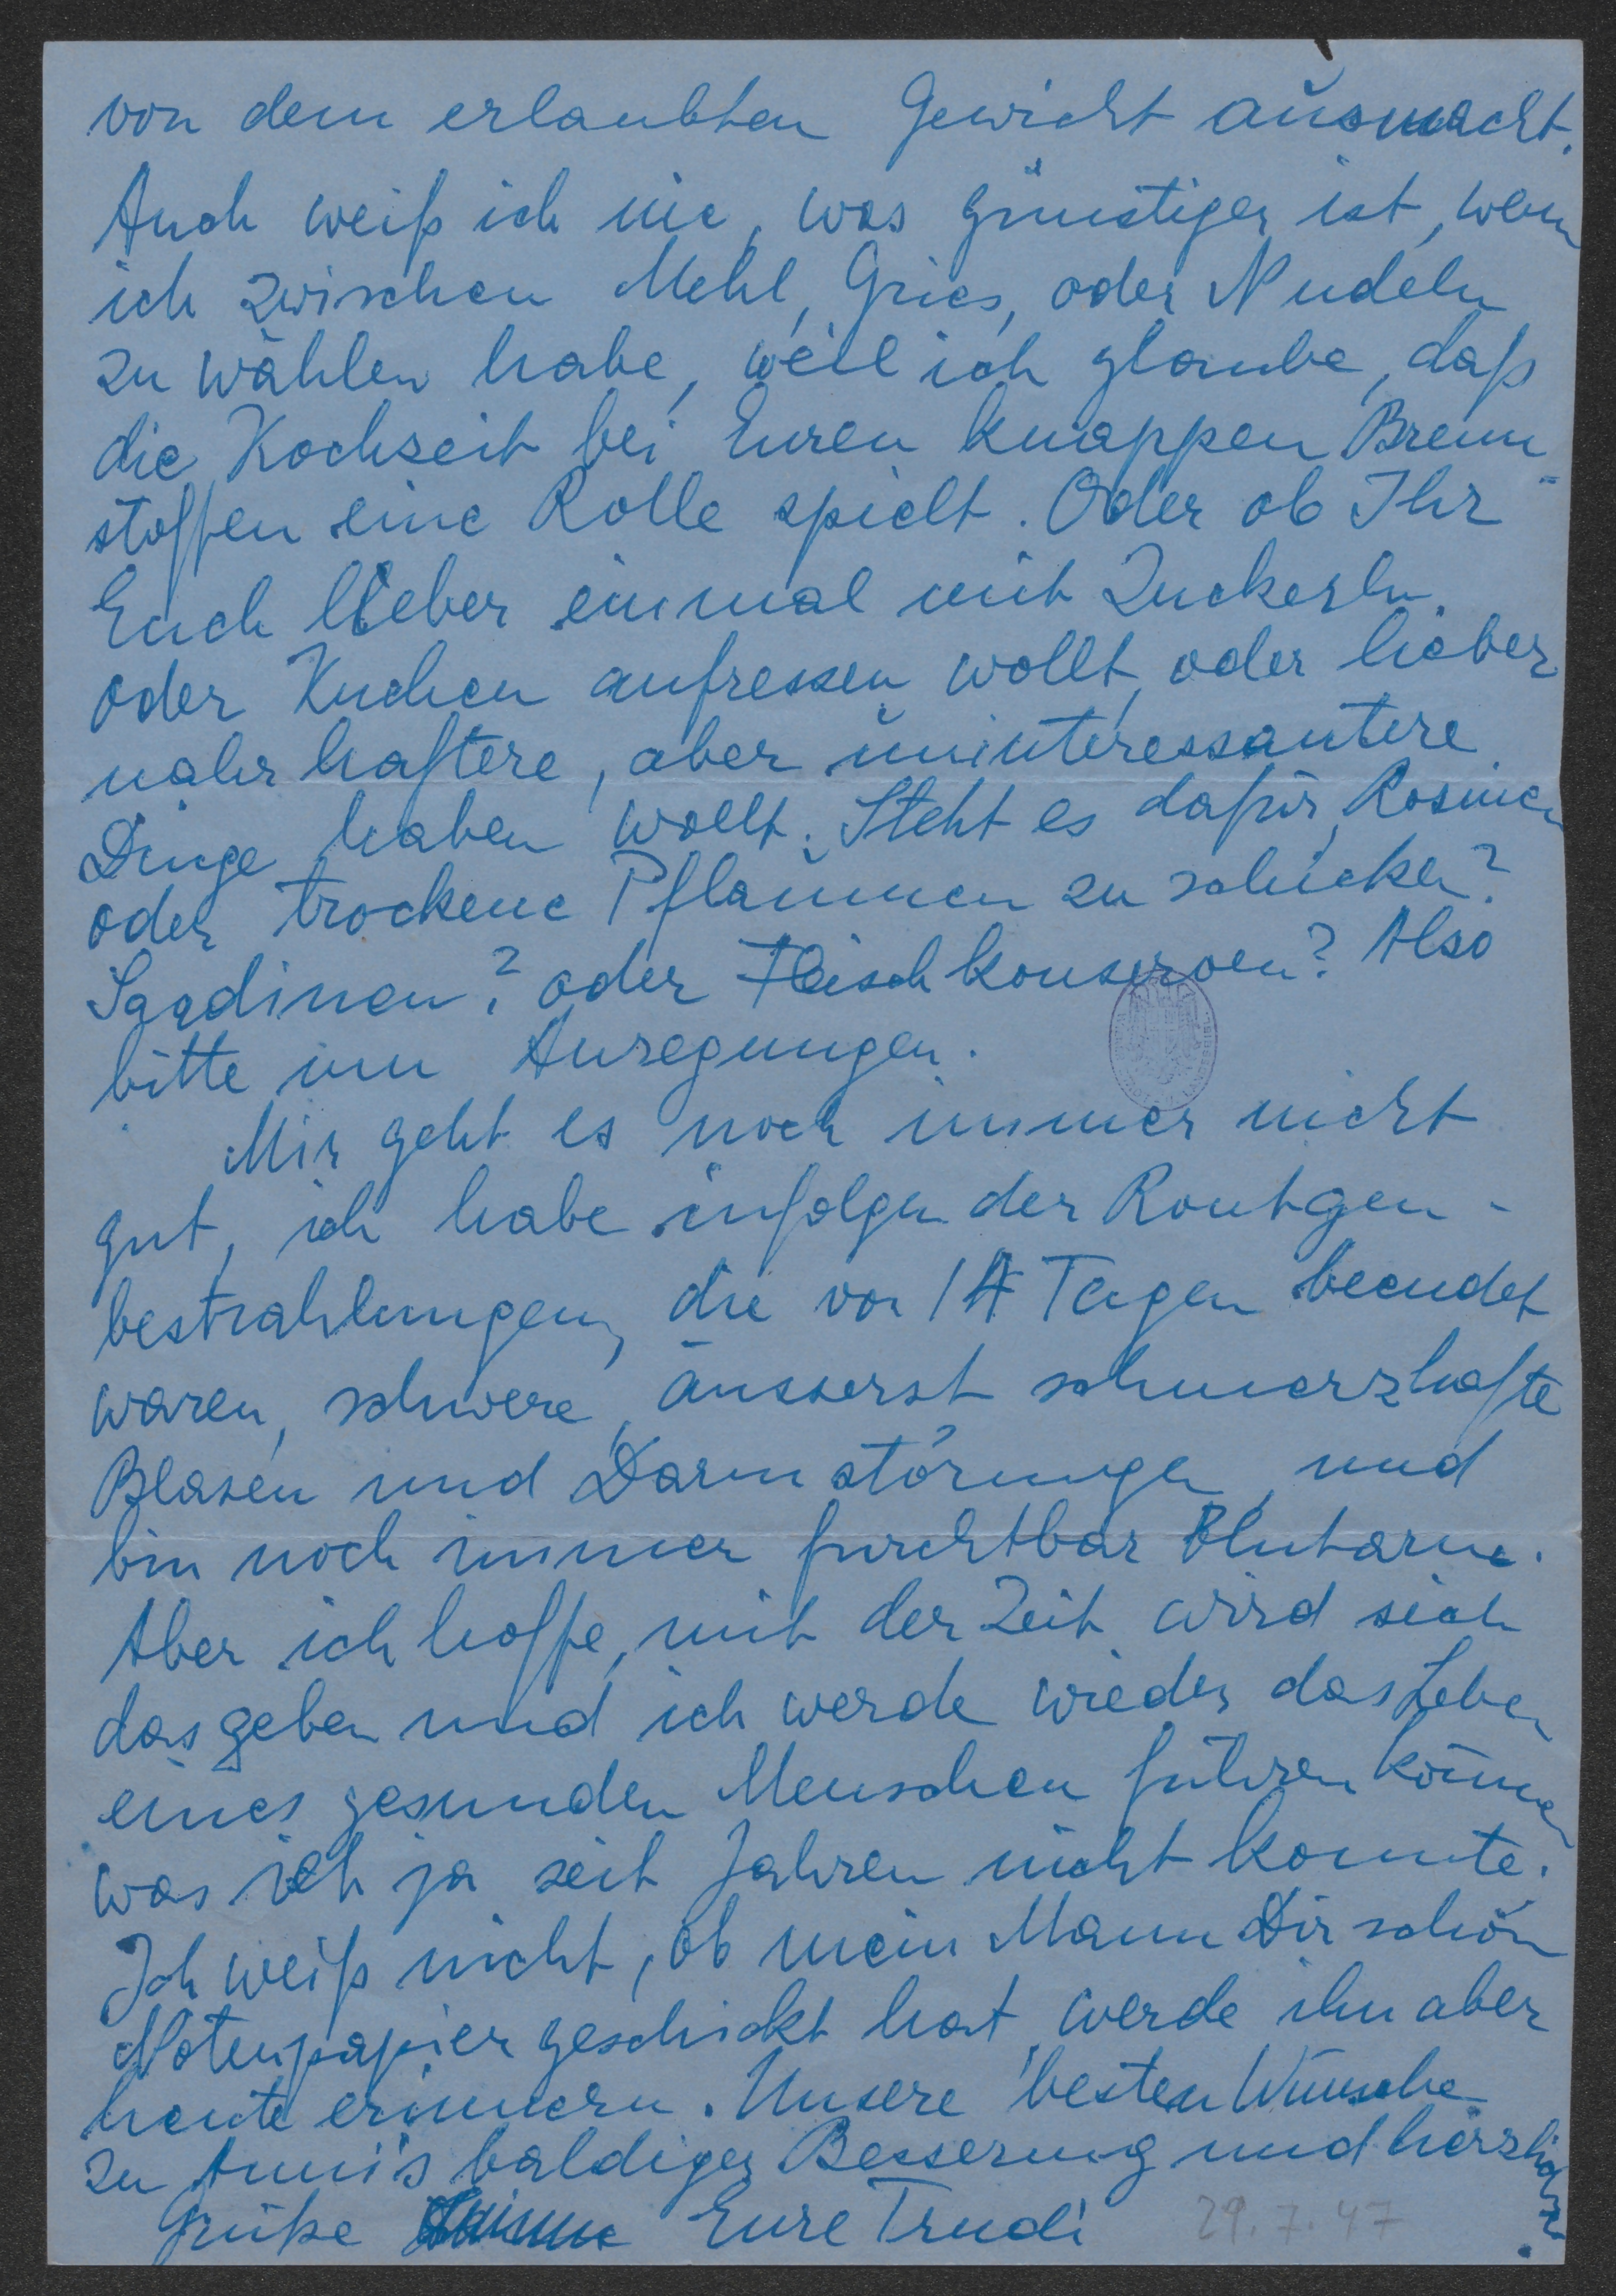 von dem erlaubten Gewicht ausmacht.
Auch weiß ich nie, was günstiger ist, wenn
ich zwischen Mehl, Gries, oder Nudeln
zu wählen habe, weil ich glaube, daß
die Kochzeit bei Euren knappen Brenn-
stoffen eine Rolle spielt. Oder ob Ihr
Euch lieber einmal mit Zuckerln
oder Kuchen anfressen wollt, oder lieber
nahrhaftere, aber uninteressantere
Dinge haben wollt. Steht es dafür, Rosinen
oder trockene Pflaumen zu schicken?
Sardinen? oder Fleischkonserven? Also
bitte um Anregungen.
Mir geht es noch immer nicht
gut, ich habe infolge der Rontgen-
bestrahlungen, die vor 14 Tagen beendet
waren, schwere, äusserst schmerzhafte
Blasen und Darmstörungen, und
bin noch immer furchtbar blutarm.
Aber ich hoffe, mit der Zeit wird sich
das geben und ich werde wieder das Leben
eines gesunden Menschen führen können
was ich ja seit Jahren nicht konnte.
Ich weiß nicht, ob mein Mann Dir schon
Notenpapier geschickt hat, werde ihn aber
heute erinnern. Unsere besten Wünsche
zu Anni's baldiger Besserung und herzliche
Grüße Eure Trudi
29.7.47